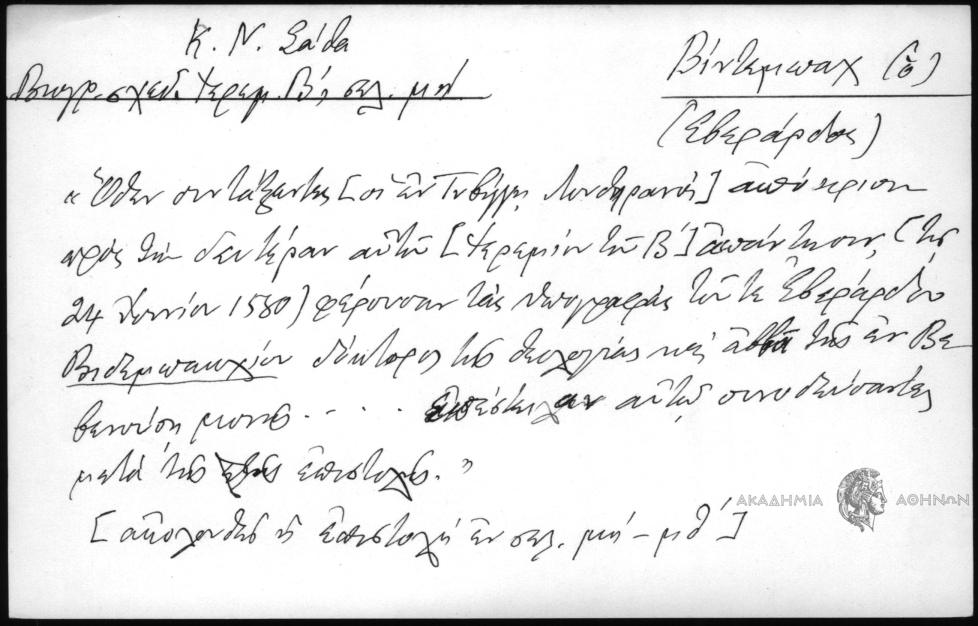 Κ. Ν. Σάθα
Βιογρ. σχεδ. Ιερεμ. Β', σελ. μή.
Βίντεμπαχ (ὁ)
(Ἐβεράρδος)
« Ὅθεν συντάξαντες [οἱ ἐν Τυβίγγῃ Λουθηρανοὶ] ἀπόκρισιν
πρὸς τὴν δευτέραν αὐτοῦ [Ἱερεμίου τοῦ Β'] ἀπάντησιν, (τῆς
24 Ἰουνίου 1580) φέρουσαν τὰς ὑπογραφὰς τοῦ τε Ἐβεράρδου
Βιδεμπαχίου δόκτορος τῆς θεολογίας καὶ ἀββᾶ τῆς ἐν Βε
βενούσῃ μονῆς . . . . ἀπέστειλαν αὐτῷ συνοδεύσαντες
μετὰ τῆς ἑξῆς ἐπιστολῆς. "
[ἀκολουθεῖ ἡ ἐπιστολὴ ἐν σελ. μή – μθ']
ΑΚΑΔΗΜΙΑ ΑΘΗΝΩΝ